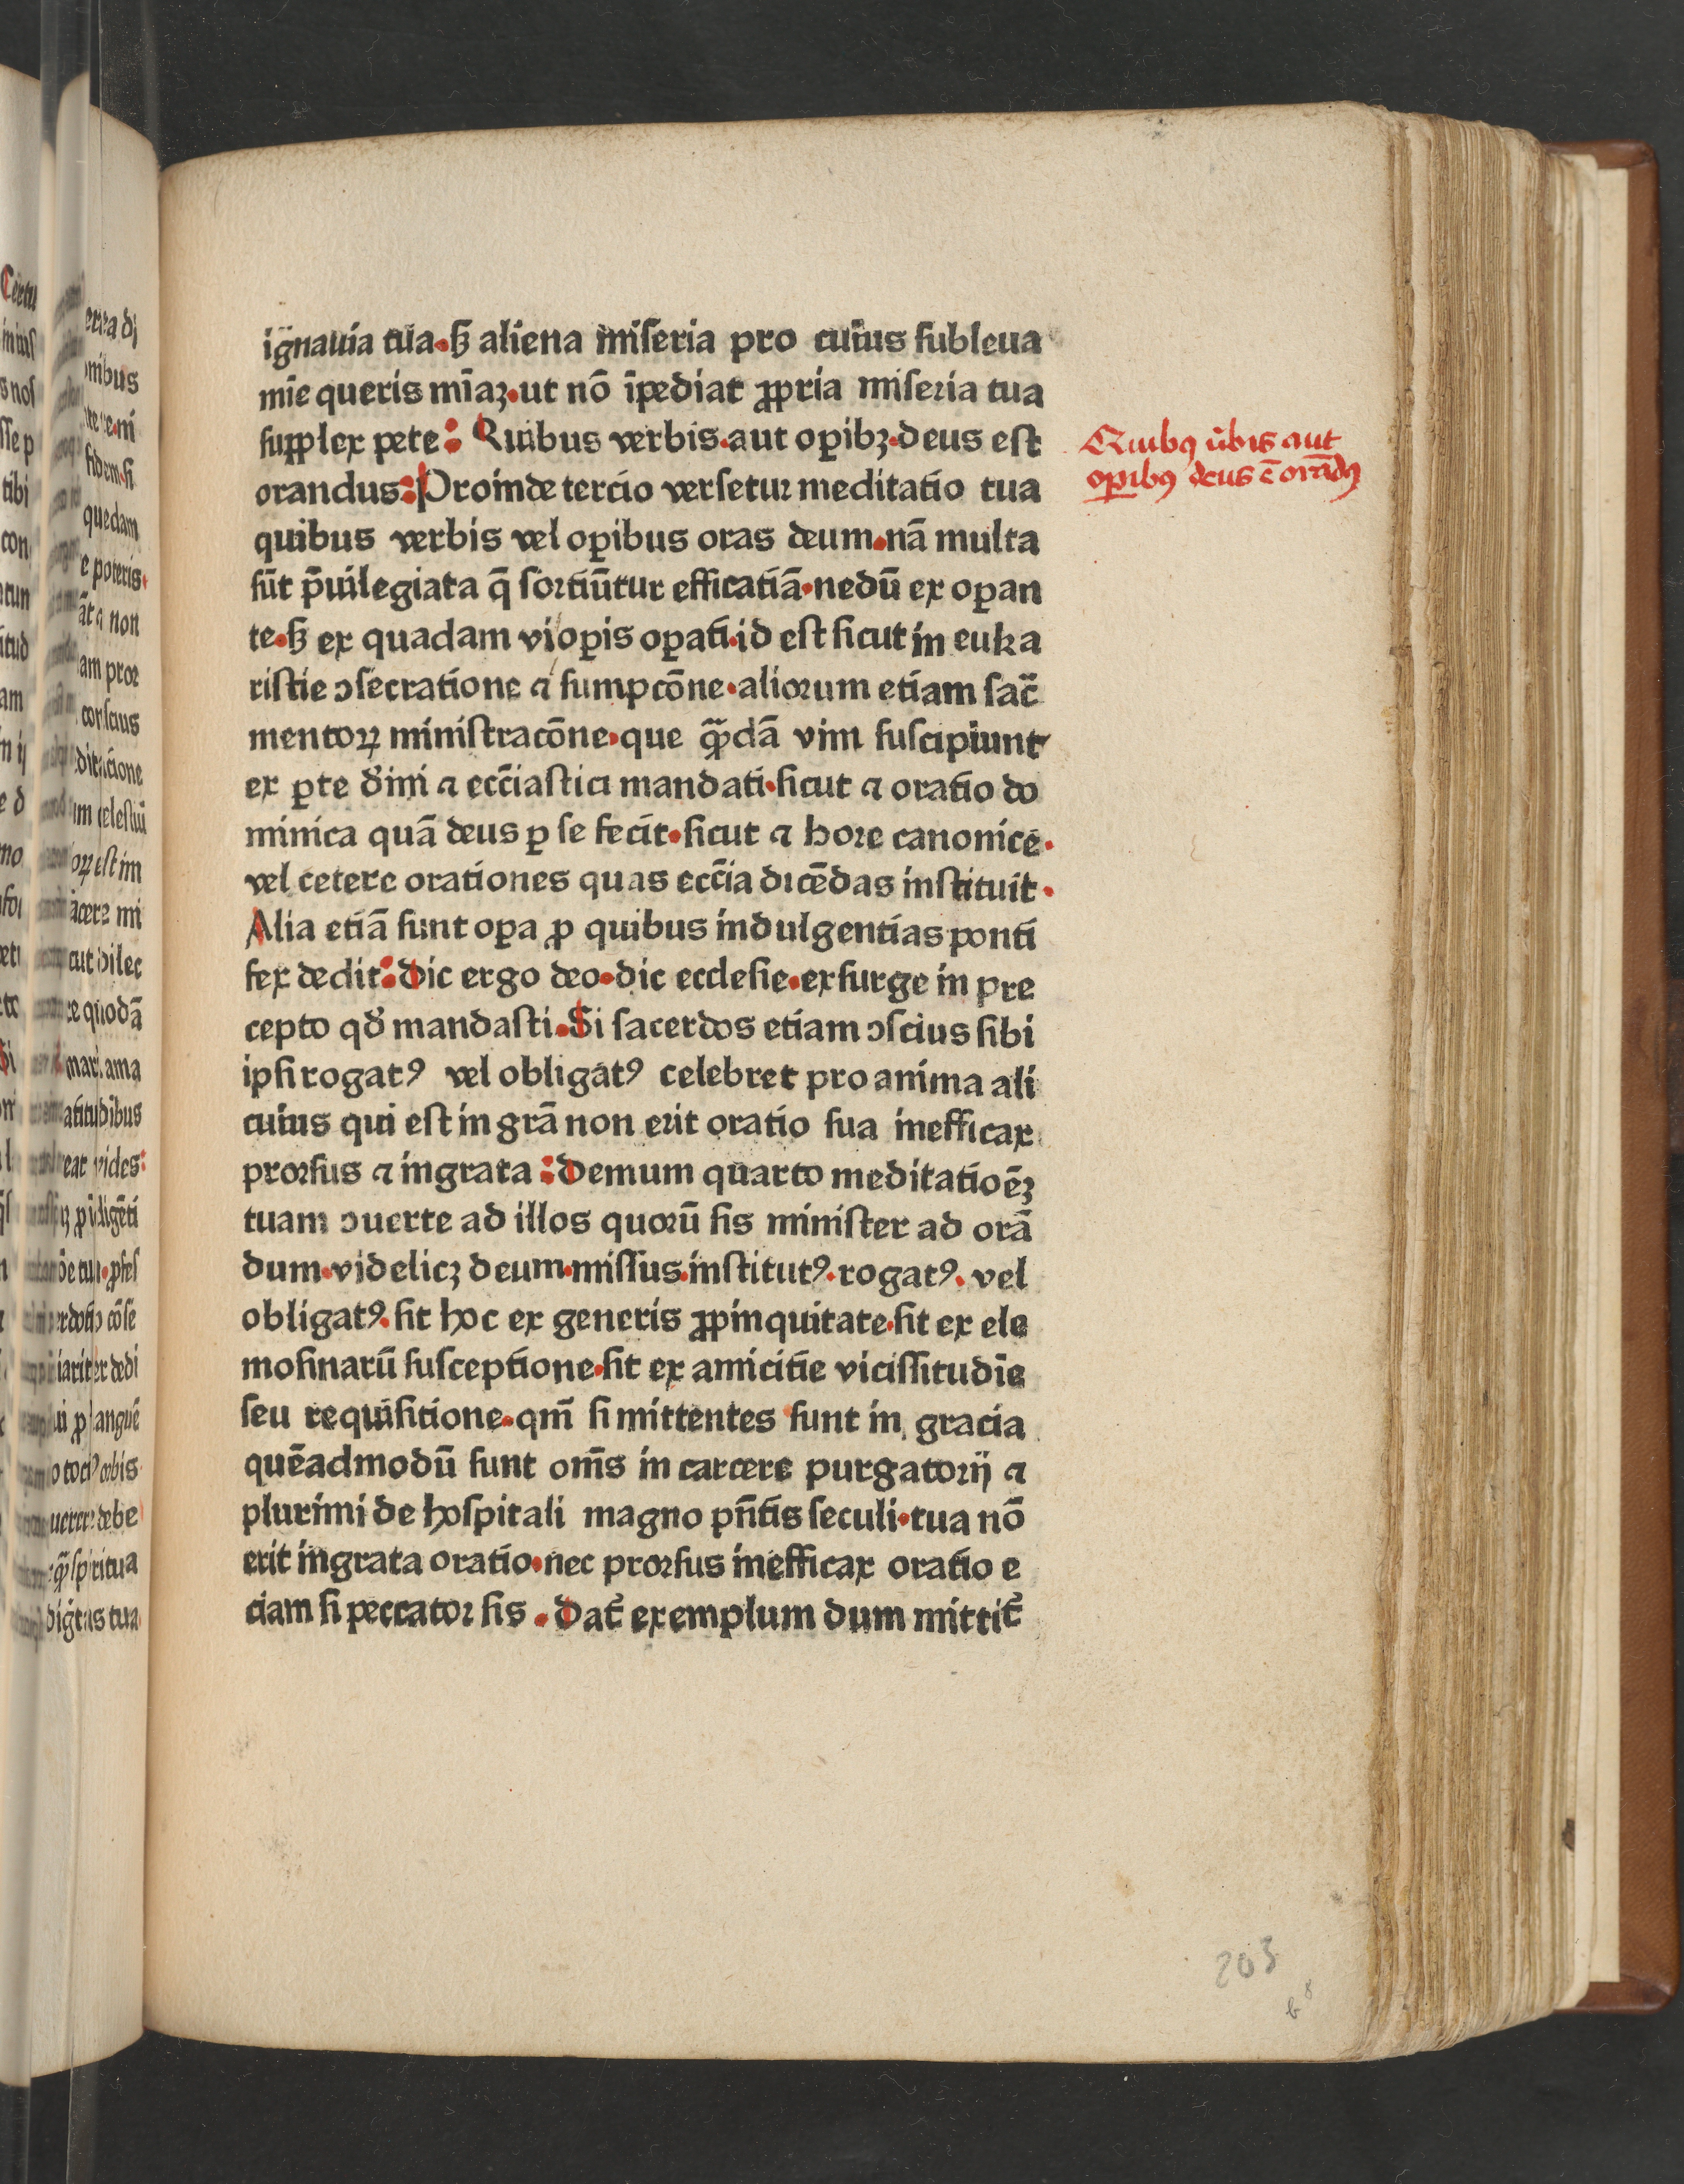 ignauia tua·ꝫ aliena miseria pro cuius subleua
mīe queris mīaꝫ·ut nō īpediat ꝓpria miseria tua
supplex pete: Quibus verbis·aut oꝑibꝫ·deus est
orandus: Proinde tercio versetur meditatio tua
quibus verbis vel oꝑibus oras deum·nā multa
sūt p̄uilegiata q̄ sortiūtur efficatiā·nedū ex oꝑan
te·ꝫ ex quadam vi oꝑis oꝑati·id est sicut in euka
ristie ↄsecratione ⁊ sumpcōne·aliorum etiam sac̄
mentoꝝ ministracōne·que quādā vim suscipiunt
ex ꝑte diuīni ⁊ ecc̄iastici mandati·sicut ⁊ oratio do
minica quā deus ꝑ se fecit·sicut ⁊ hore canonice·
vel cetere orationes quas ecc̄ia dicēdas instituit·
Alia etiā sunt oꝑa ꝓ quibus indulgentias ponti
fex dedit: Dic ergo deo·dic ecclesie·exsurge in pre
cepto qđ mandasti·Si sacerdos etiam ↄscius sibi
ipsi rogatꝰ vel obligatꝰ celebret pro anima ali
cuius qui est in grā non erit oratio sua inefficax
prorsus ⁊ ingrata: Demum quarto meditatioēꝫ
tuam ↄuerte ad illos quorū sis minister ad orā
dum·videlicꝫ deum·missus·institutꝰ·rogatꝰ·vel
obligatꝰ·sit hoc ex generis ꝓpinquitate·sit ex ele
mosinarū susceptione·sit ex amicitie vicissitudīe
seu requisitione·qm̄ si mittentes sunt in gracia
quēadmodū sunt om̄s in carcere purgatorij ⁊
plurimi de hospitali magno pn̄tis seculi·tua nō
erit ingrata oratio·nec prorsus inefficax oratio e
ciam si peccator sis·Dat̄ exemplum dum mittit̄
Quibꝰ ūbis aut
oꝑibꝰ deus ē orādꝰ
203
b 8